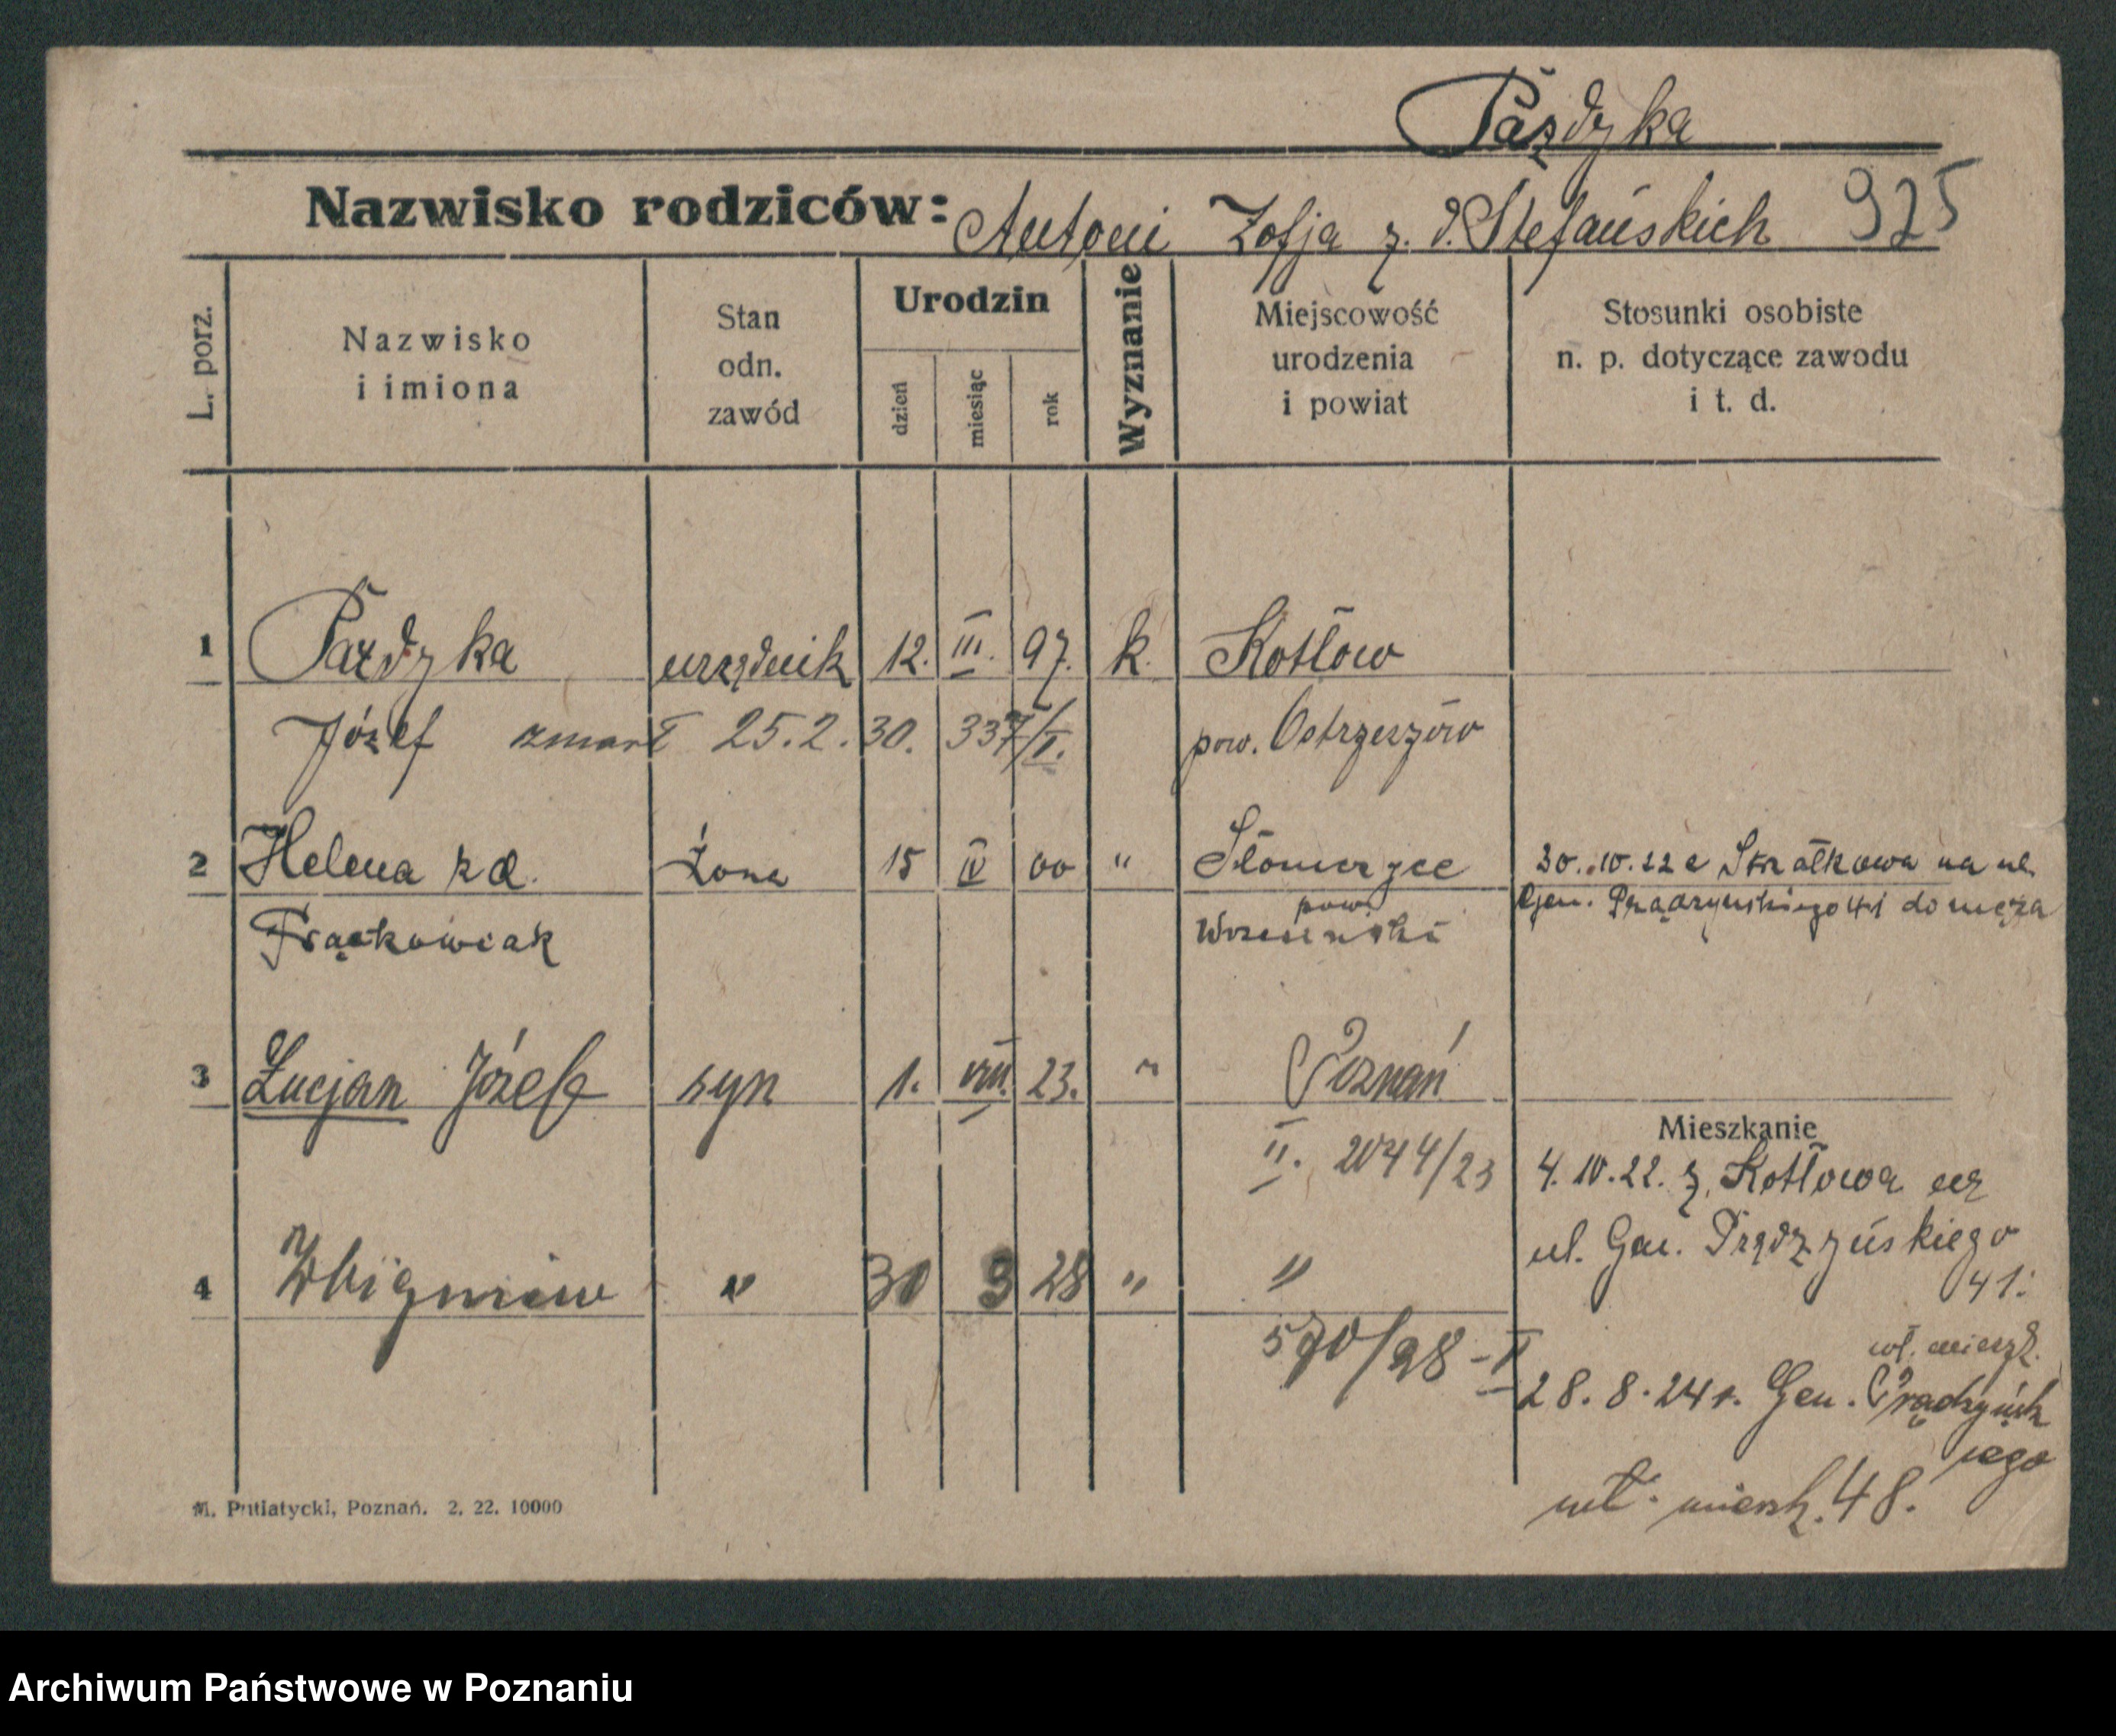 Pazdyka
Nazwisko rodziców: Antoni Zofja z. d. Stefańskich 925
L. porz.
Nazwisko i imiona
Stan odn. zawód
Urodzin
dzień miesiąc rok
Wyznanie
Miejscowość urodzenia i powiat
Stosunki osobiste n. p. dotyczące zawodu i t. d.
1 Pazdyka urzędnik 12. III. 97. k. Kotłow
Józef zmarł 25.2.30. 337/I. pow. Ostrzeszów
2 Helena z d. żona 15 IV 00 " Słomczyce 30.10.22 z Strzałkowa na ul.
Frąckowiak pow. Wrzesiński Gen. Prądzyńskiego 41 do męża
3 Lucjan Józef syn 1. VIII. 23. " Poznań
II. 2044/23
Mieszkanie
4.10.22. z Kotłowa na
ul. Gen. Prądzyńskiego
41.
4 Zbigniew " 30 3 28 " "
570/28-II
wł. mieszk.
28.8.24 r. Gen. Prądzyńsk
iego
wł. mieszk. 48.
M. Putiatycki, Poznań. 2. 22. 10000
Archiwum Państwowe w Poznaniu